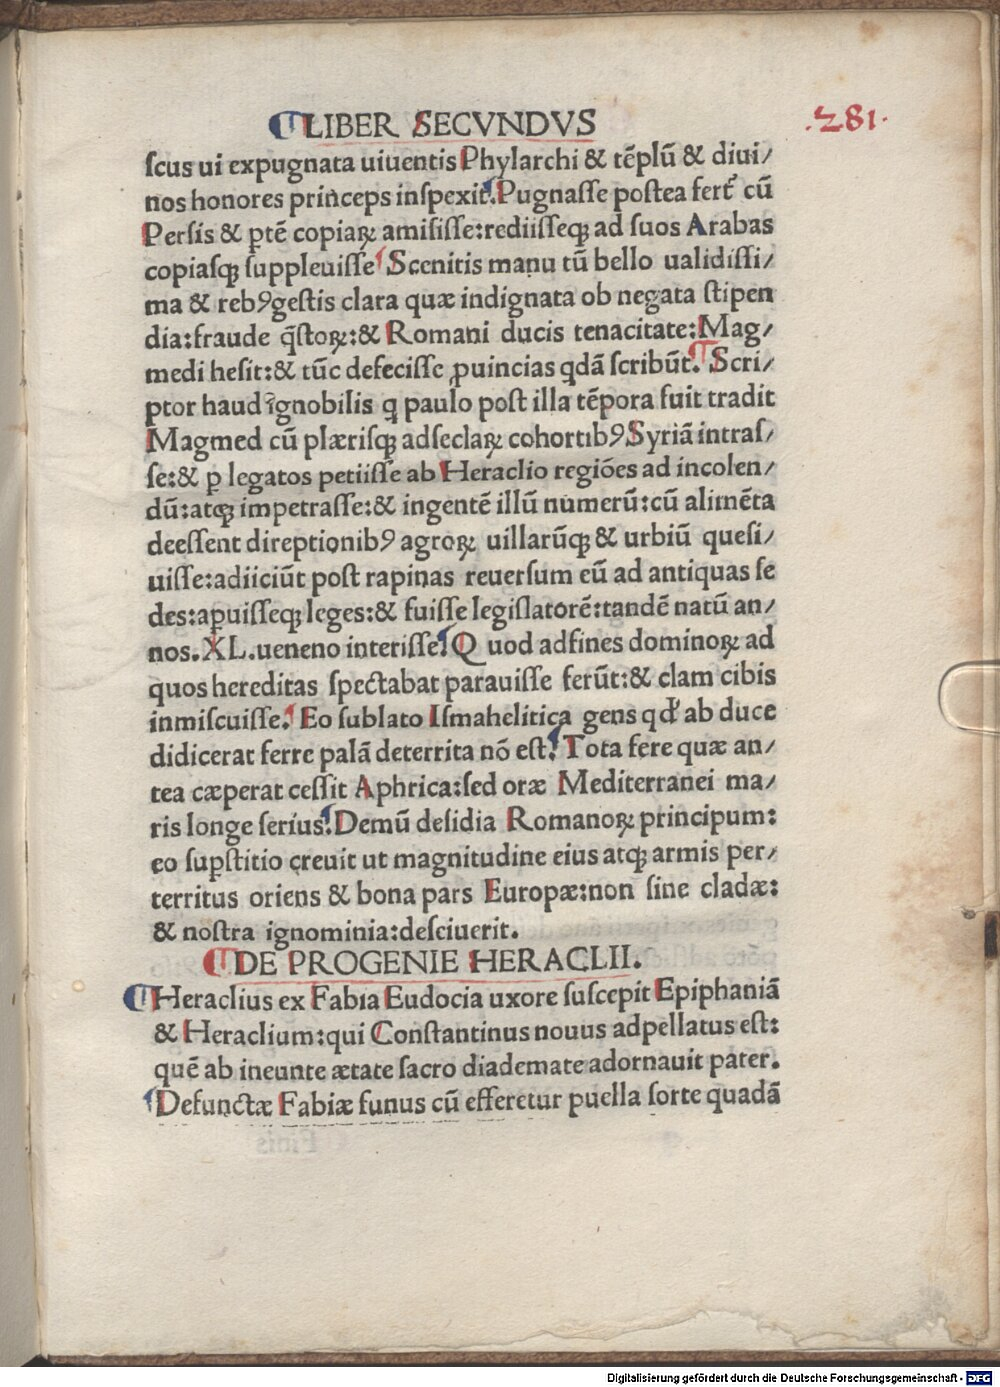 LIBER SECVNDVS
.281.
ſcus ui expugnata uiuentis Phylarchi & tēplū & diui/
nos honores princeps inſpexit. Pugnaſſe poſtea fert̄ cū
Perſis & ꝑtē copiaꝝ amiſiſſe:rediiſſeqꝫ ad ſuos Arabas
copiaſqꝫ ſuppleuiſſe Scenitis manu tū bello ualidiſſi/
ma & rebꝰ geſtis clara quæ indignata ob negata ſtipen
dia:fraude q̄ſtoꝝ:& Romani ducis tenacitate:Mag/
medi heſit:& tūc defeciſſe ꝓuincias qdā ſcribūt. Scri/
ptor haud ignobilis q paulo poſt illa tēpora fuit tradit
Magmed cū plæriſqꝫ adſeclaꝝ cohortibꝰ Syriā intraſ/
ſe:& ꝑ legatos petiiſſe ab Heraclio regiōes ad incolen/
dū:atqꝫ impetraſſe:& ingentē illū numerū:cū alimēta
deeſſent direptionibꝰ agroꝝ uillarūqꝫ & urbiū queſi/
uiſſe:adiiciūt poſt rapinas reuerſum eū ad antiquas ſe
des:apuiſſeqꝫ leges:& fuiſſe legiſlatorē:tandē natū an/
nos.XL.ueneno interiſſe. Q uod adfines dominoꝝ ad
quos hereditas ſpectabat parauiſſe ferūt:& clam cibis
inmiſcuiſſe. Eo ſublato Iſmahelitica gens qd' ab duce
didicerat ferre palā deterrita nō eſt. Tota fere quæ an/
tea cæperat ceſſit Aphrica:ſed oræ Mediterranei ma/
ris longe ſerius. Demū deſidia Romanoꝝ principum:
eo ſupſtitio creuit ut magnitudine eius atqꝫ armis per/
territus oriens & bona pars Europæ:non ſine cladæ:
& noſtra ignominia:deſciuerit.
DE PROGENIE HERACLII.
Heraclius ex Fabia Eudocia uxore ſuſcepit Epiphaniā
& Heraclium:qui Conſtantinus nouus adpellatus eſt:
quē ab ineunte ætate ſacro diademate adornauit pater.
Defunctæ Fabiæ funus cū efferetur puella ſorte quadā
Digitalisierung gefördert durch die Deutsche Forschungsgemeinschaft - DFG